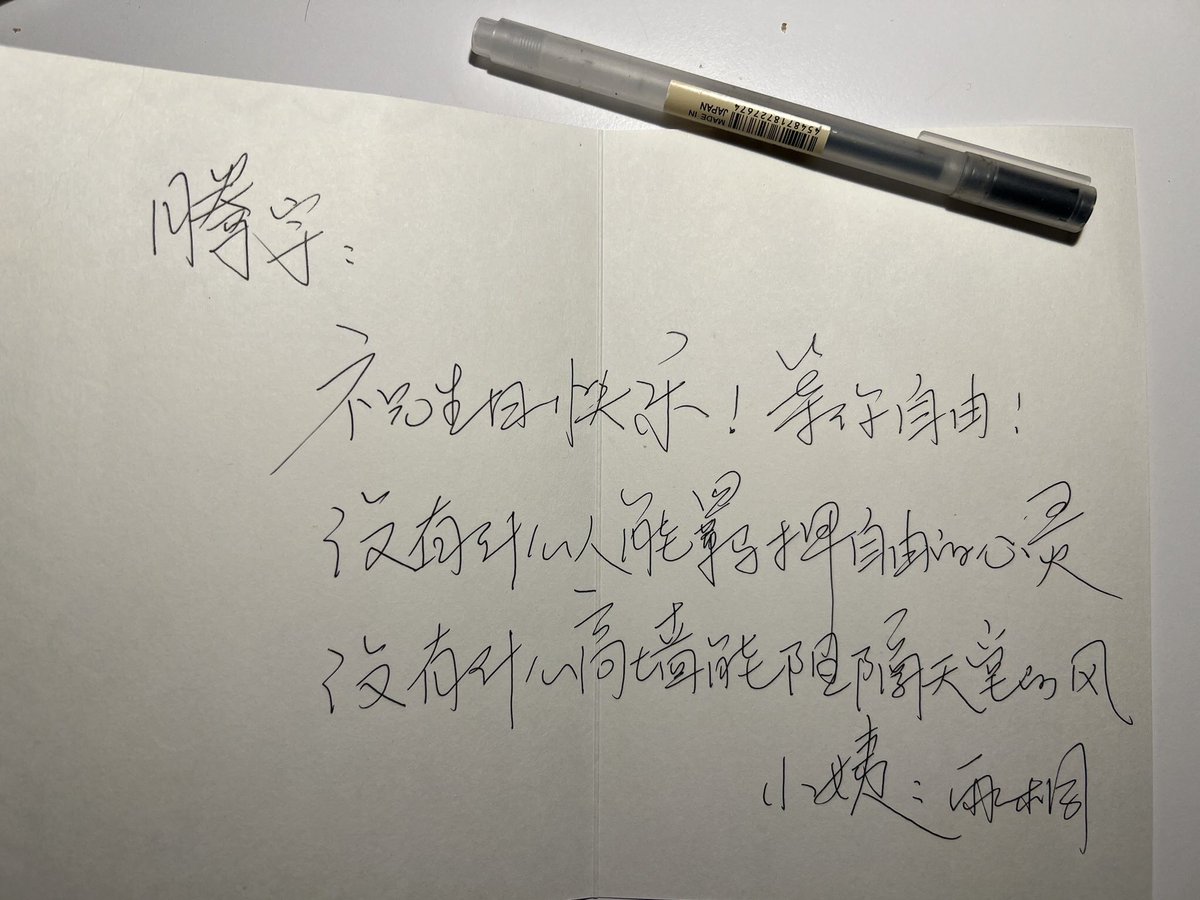 MADE IN
JAPAN
4548718727674
腾宇：
祝生日快乐！等你自由！
没有什么人能羁押自由的心灵
没有什么高墙能阻隔天堂的风
小姨：雨桐